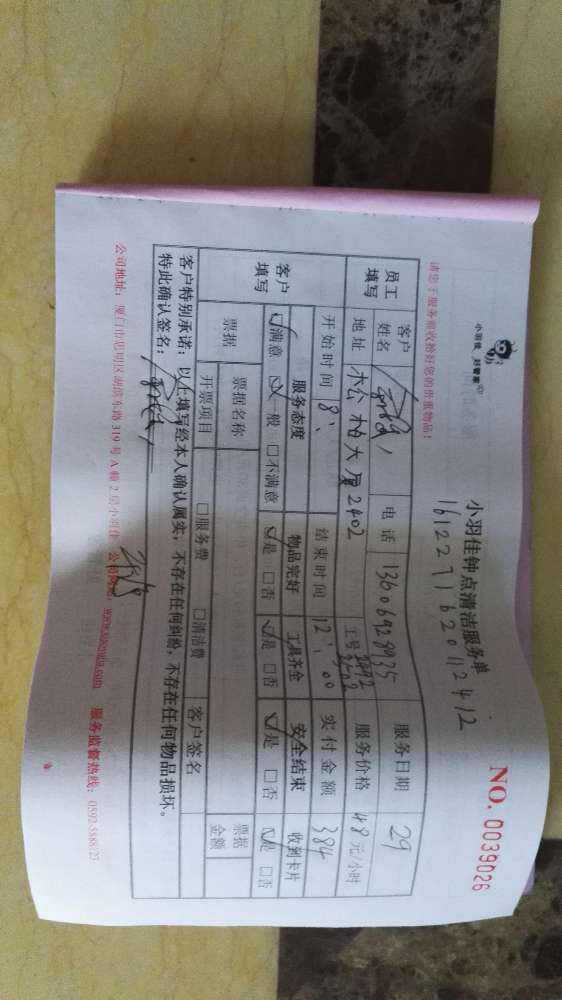 小羽佳 好管家
小羽佳钟点清洁服务单
NO. 0039026
161229162011 2412
请您于服务前收拾好您的贵重物品!
员工填写
客户姓名
电话 13606928935
服务日期 29
地址 松柏大厦2402
工号
服务价格 48元/小时
开始时间 8:
结束时间 12:00
实付金额 384
客户填写
服务态度 物品完好 工具齐全 安全结束 收到卡片
☑满意 ☑一般 □不满意 ☑是 □否 ☑是 □否 ☑是 □否 ☑是 □否
票据
票据名称
票据金额
开票项目 □服务费 □清洁费 客户签名
客户特别承诺:以上填写经本人确认属实,不存在任何纠纷,不存在任何物品损坏。
特此确认签名:
公司地址:厦门市思明区湖滨东路319号A幢2层小羽佳 公司网址:www.xiaoyujia.com 服务监督热线:0592-5888123